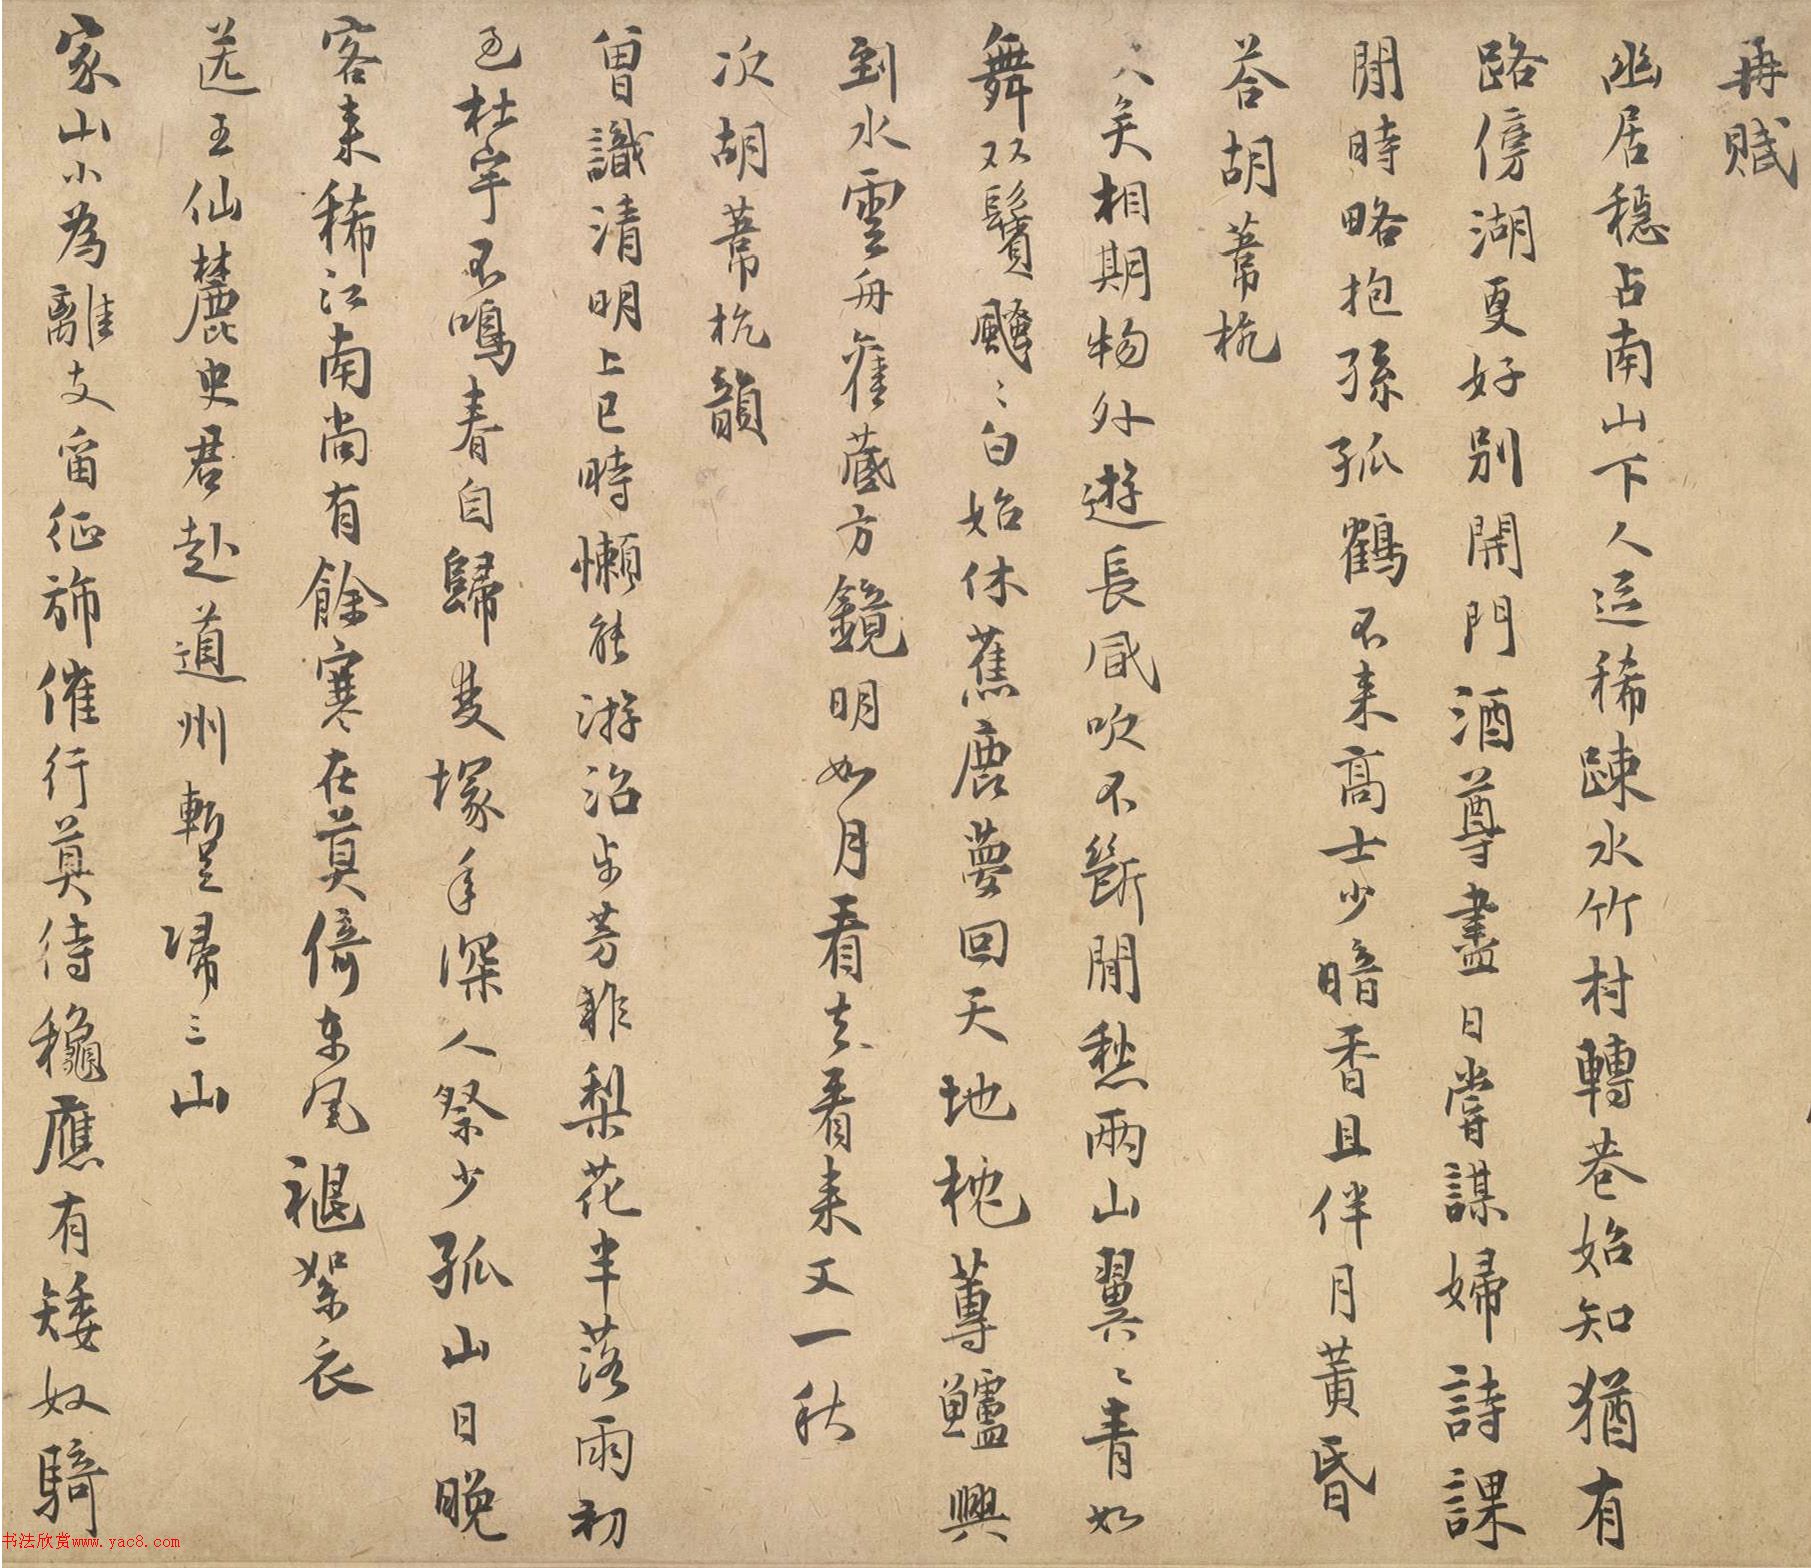 再賦
幽居穩占南山下人迹稀踈水竹村轉巷始知猶有
路傍湖更好別開門酒尊盡日嘗謀婦詩課
閒時略抱孫孤鶴不来高士少暗香且伴月黃昏
荅胡葦杭
久矣相期物外遊長風吹不斷閒愁兩山翼〻青如
舞双鬢飄〻白始休蕉鹿夢回天地枕蓴鱸興
到水雲舟舊藏方鏡明如月看去看来又一秋
次胡葦杭韻
曽識清明上巳時懶能游冶步芳菲梨花半落雨初
过杜宇不鳴春自歸雙塚年深人祭少孤山日晚
客来稀江南尚有餘寒在莫倚东风褪絮衣
送王仙麓史君赴道州暫归三山
家山小為離支留征旆催行莫待穐應有矮奴騎
书法欣赏www.yac8.com